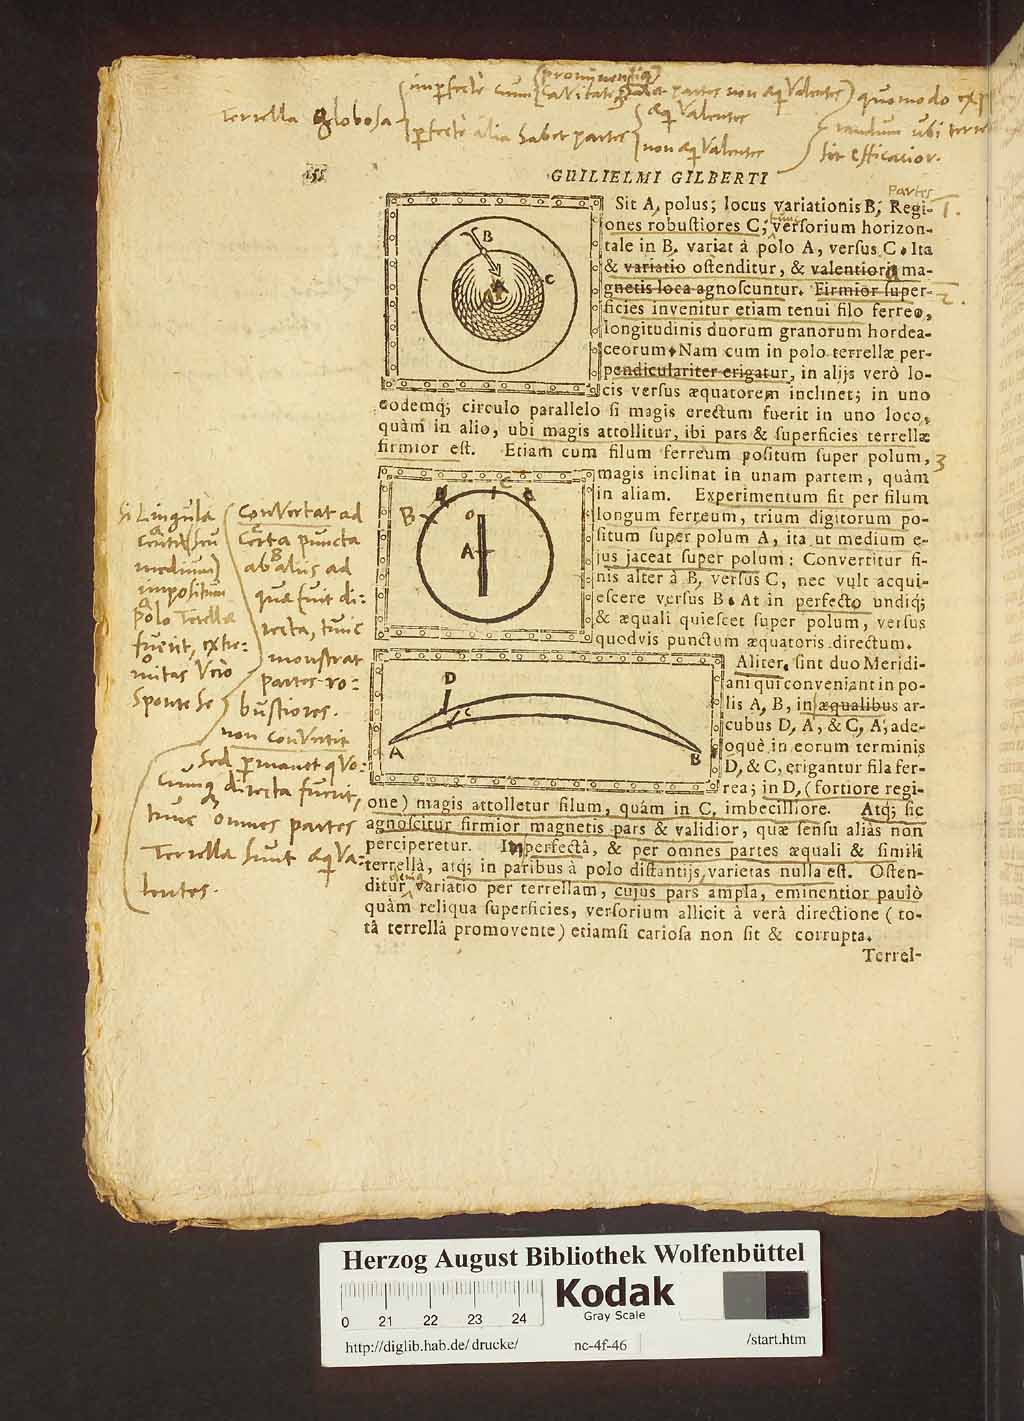 imperfectè cum
cavitate
partes non æqValentes) quomodo
Terrella globosa
perfectè alia habet partes
æqValentes
non æqValentes
ubi
sit efficacior.
155
GUILIELMI GILBERTI
partes
Sit A, polus; locus variationis B, Regi- 1.
ones robustiores C; versorium horizon-
tale in B, variat à polo A, versus C. Ita
& variatio ostenditur, & valentiora ma-
gnetis loca agnoscuntur. Firmior super- 2.
ficies invenitur etiam tenui filo ferreo,
longitudinis duorum granorum hordea-
ceorum. Nam cum in polo terrellæ per-
pendiculariter erigatur, in alijs verò lo-
cis versus æquatorem inclinet; in uno
eodemq; circulo parallelo si magis erectum fuerit in uno loco,
quàm in alio, ubi magis attollitur, ibi pars & superficies terrellæ
firmior est. Etiam cum filum ferreum positum super polum, 3
magis inclinat in unam partem, quàm
in aliam. Experimentum fit per filum
longum ferreum, trium digitorum po-
situm super polum A, ita ut medium e-
jus jaceat super polum: Convertitur fi-
nis alter à B, versus C, nec vult acqui-
escere versus B. At in perfecto undiq;
& æquali quiescet super polum, versus
quodvis punctum æquatoris directum.
Aliter, sint duo Meridi-
ani qui conveniant in po-
lis A, B, in æqualibus ar-
cubus D, A, & C, A, ade-
oquè in eorum terminis
D, & C, erigantur fila fer-
rea; in D, (fortiore regi-
one) magis attolletur filum, quàm in C, imbecilliore. Atq; sic
agnoscitur firmior magnetis pars & validior, quæ sensu aliàs non
perciperetur. In perfectâ, & per omnes partes æquali & simili
terrellâ, atq; in paribus à polo distantijs, varietas nulla est. Osten-
ditur variatio per terrellam, cujus pars ampla, eminentior paulò
quàm reliqua superficies, versorium allicit à verâ directione (to-
tâ terrellâ promovente) etiamsi cariosa non sit & corrupta.
Terrel-
B
C
A
B
C
o
A
D
C
A
B
Si Lingula
medium)
impositum
polo Terellæ
fuerit, extre-
mitas Vero
Sponte Se
conVertat ad
certa puncta
ab aliis ad
quæ fuit di:
recta, tunc
monstrat
partes ro:
bustiores.
non conVertit
Sed permanet qVo:
cunq directa fuerit,
tunc omnes partes
Terrellæ Sunt æqVa:
lentes.
Herzog August Bibliothek Wolfenbüttel
Kodak
Gray Scale
0 21 22 23 24
http://diglib.hab.de/drucke/ nc-4f-46 /start.htm